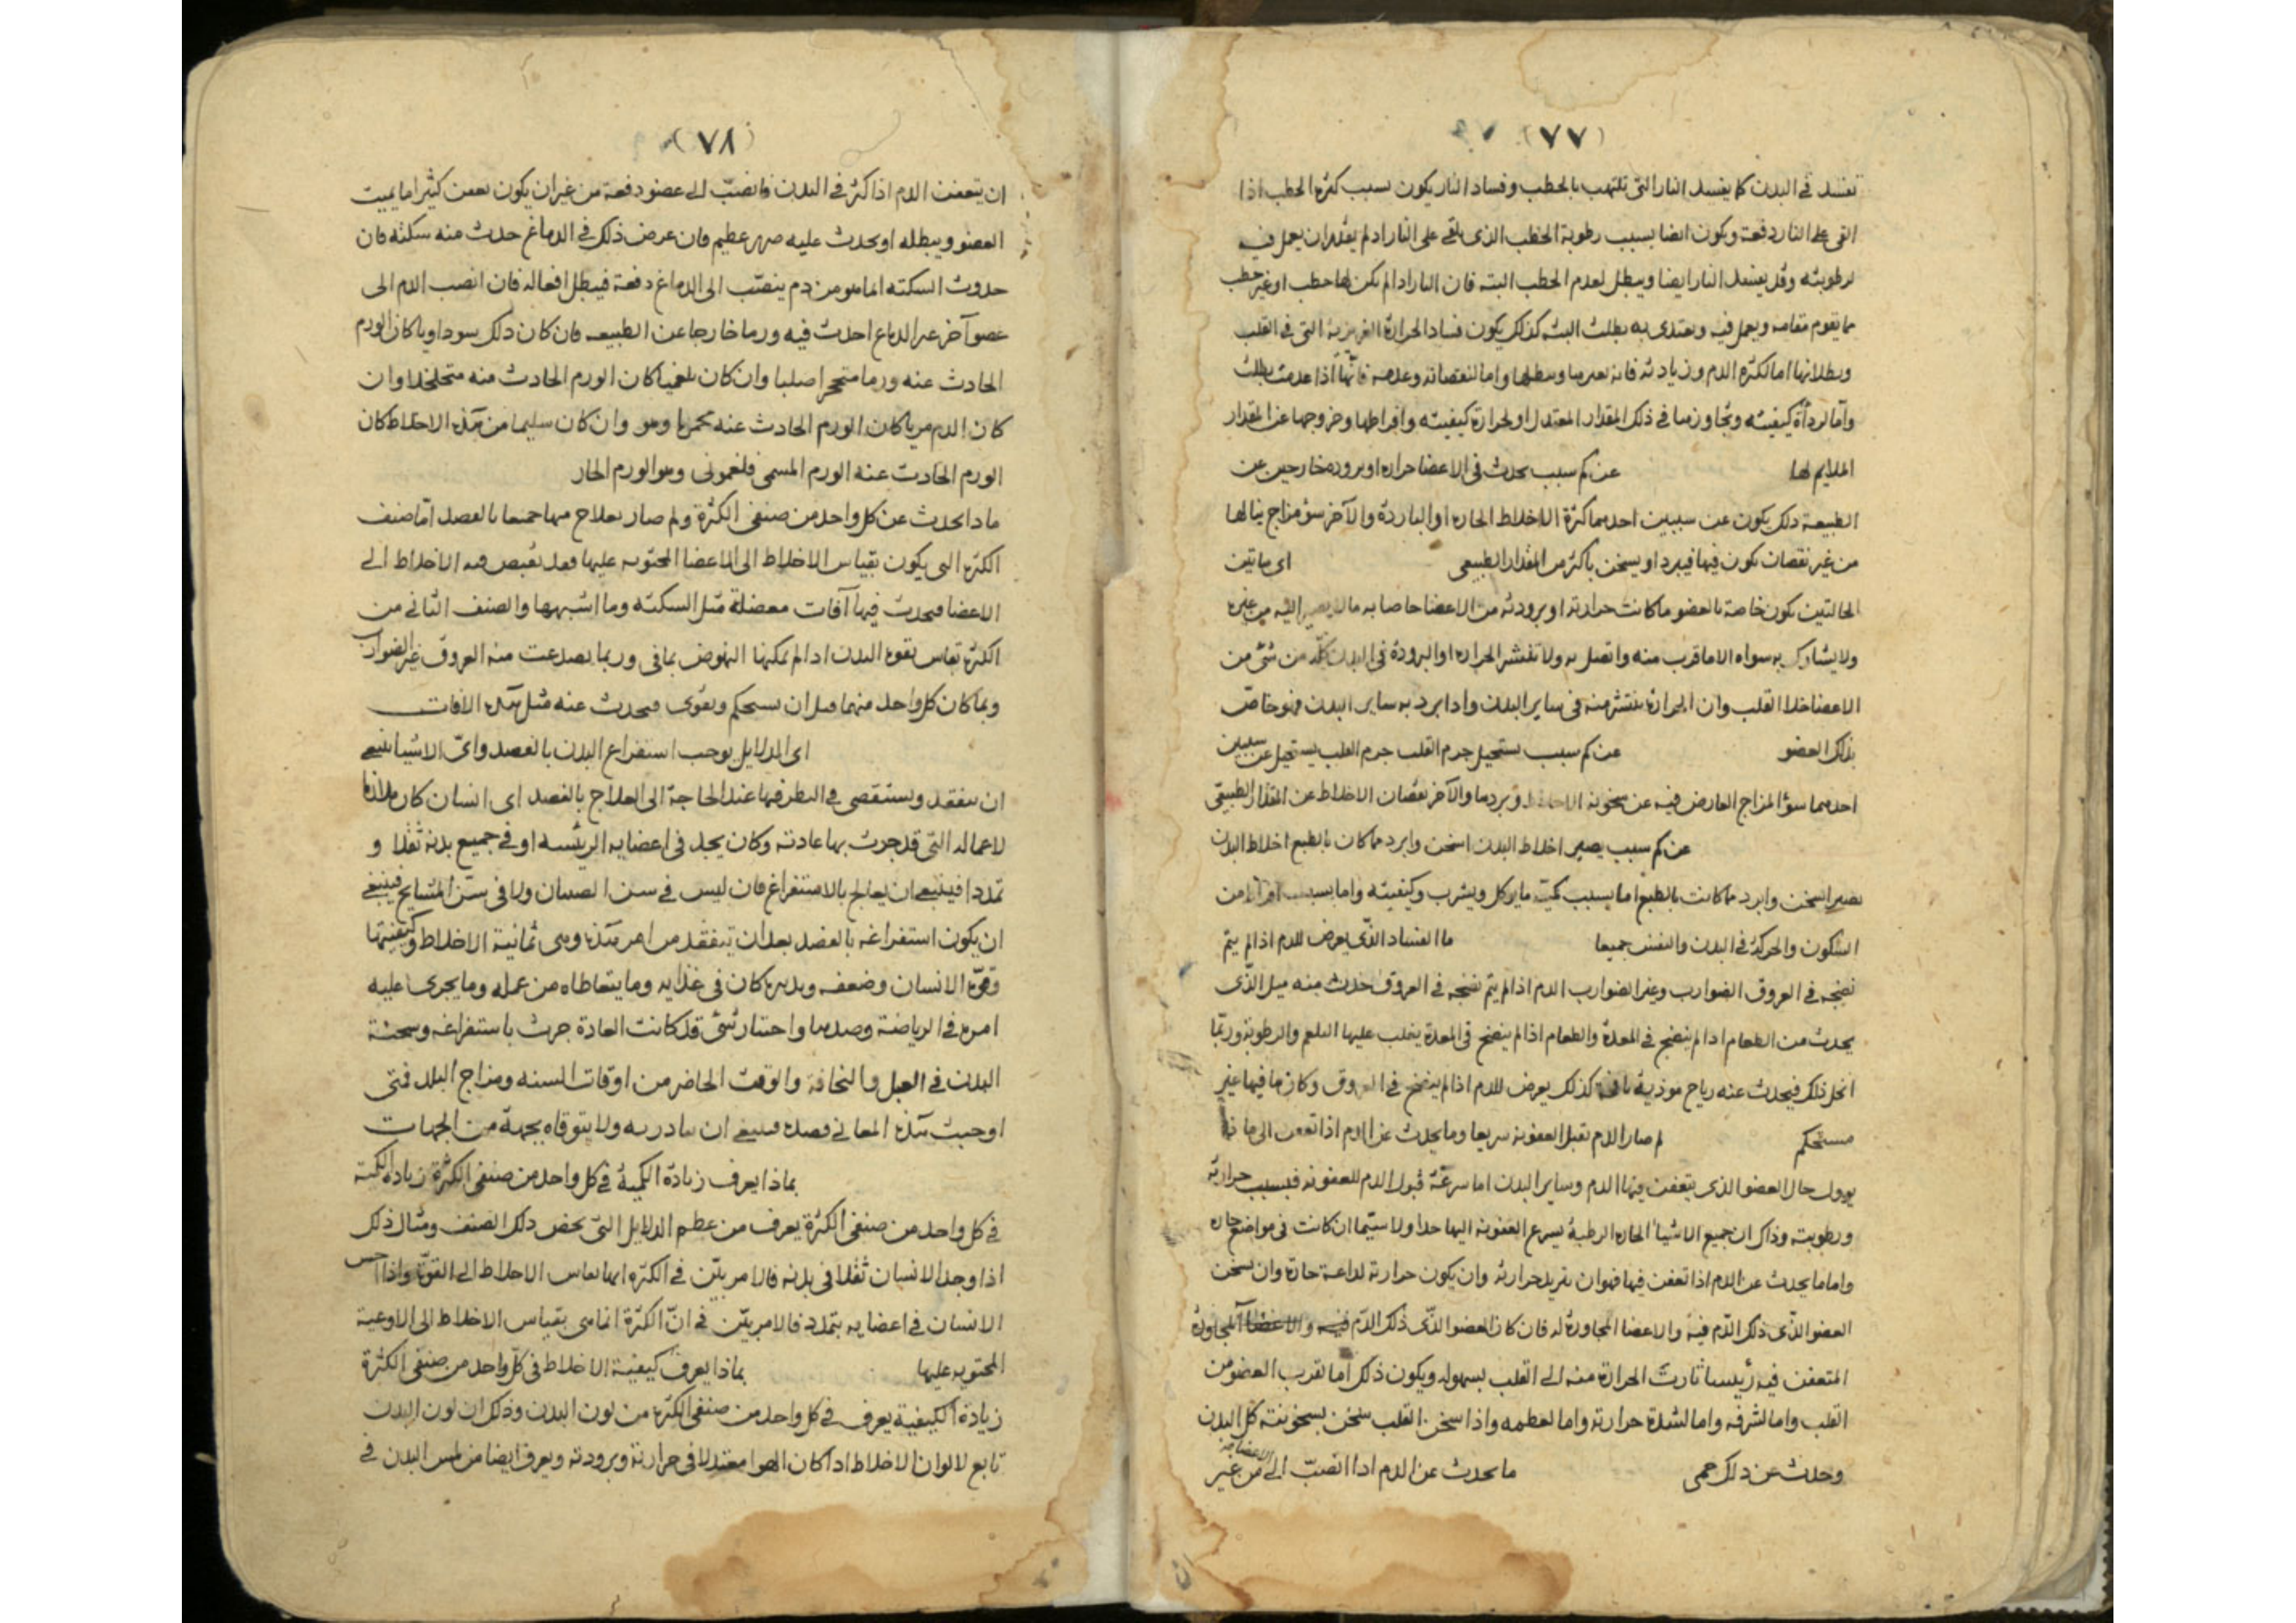 (٧٧)
تفسد في البدن كما يفسد النار التي تلتهب بالحطب وفساد النار يكون بسبب كثرة الحطب اذا
القى على النار دفعة ويكون ايضا بسبب رطوبة الحطب الذى يلقى على النار اذ لم يقدر ان يعمل فيه
لرطوبته وقد يفسد النار ايضا ويبطل لعدم الحطب البته فان النار اذا لم يكن لها حطب او غير حطب
مما يقوم مقامه ويعمل فيه ويغتدى به بطلت البته كذلك يكون فساد الحرارة الغريزية التي في القلب
وبطلانها اما لكثرة الدم وزيادته فانه يغمرها ويبطلها واما لنقصانه وعدمه فانها اذا عدمت بطلت
واما لردأة كيفيته وتجاوزها في ذلك المقدار المعتدل او لحرارة كيفيته وافراطها وخروجها عن المقدار
الملايم لها عن كم سبب يحدث فى الاعضا حراره او بروده خارجين عن
الطبيعة ذلك يكون عن سببين احدهما كثرة الاخلاط الحاره او الباردة والآخر سؤ مزاج ينالها
من غير نقصان يكون فيها فيبرد او يسخن باكثر من المقدار الطبيعى اى ماتين
الحالتين يكون خاصة بالعضو ما كانت حرارته او برودته من الاعضا خاصا به مالا يصير اليه من غيره
ولا يشاركه به سواه الا ما قرب منه واتصل به ولا تنتشر الحراره او البرودة في البدن كله من شئ من
الاعضا خلا القلب وان الحرارة تنتشر منه فى ساير البدن واذا برد به ساير البدن فهو خاص
بذلك العضو عن كم سبب يستحيل جرم القلب جرم القلب يستحيل عن سببين
احدهما سؤ المزاج العارض فيه عن سخونة الاخلاط وبردها والآخر نقصان الاخلاط عن المقدار الطبيعى
عن كم سبب يصير اخلاط البدن اسخن وابرد مما كان بالطبع اخلاط البدن
يصير اسخن وابرد مما كانت بالطبع اما بسبب كمية ما يوكل ويشرب وكيفيته واما بسبب افراط من
السكون والحركة في البدن والنفس جميعا ما الفساد الذى يعرض للدم اذا لم يتم
نضجه في العروق الضوارب وغير الضوارب الدم اذا لم يتم نضجه في العروق حدث منه مثل الذى
يحدث من الطعام اذا لم ينضج في المعدة والطعام اذا لم ينضج في المعدة يغلب عليها البلغم والرطوبة وربما
انحل ذلك فيحدث عنه رياح موذية كذلك يعرض للدم اذا لم ينضج في العروق وكان ما فيها غير
مستحكم لم صار الدم يقبل العفونة سريعا وما يحدث عن الدم اذا تعفن الى ما ذا
يوول حال العضو الذى يتعفن فيها الدم وساير البدن اما سرعة قبول الدم للعفونه فبسبب حرارته
ورطوبته وذاك ان جميع الاشيا الحاره الرطبة يسرع العفونه اليها جدا ولا سيما ان كانت في مواضع حاره
واما ما يحدث عن الدم اذا تعفن فيها فهو ان يزيد حرارته وان يكون حرارته لداعة حارة وان يسخن
العضو الذى ذلك الدم فيه والاعضا المجاورة له فان كان العضو الذى ذلك الدم فيه والاعضا المجاورة
المتعفن فيه رئيسا ثارت الحرارة منه الى القلب بسهوله ويكون ذلك اما لقرب العضو من
القلب واما لشرفه واما لشدة حرارته واما لعظمه واذا سخن القلب سخن بسخونته كل البدن
وحدث عن ذلك حمى ما يحدث عن الدم اذا انصب الى الاعضا من غير
(٧٨)
ان يتعفن الدم اذا كثر في البدن فانصب الى عضو دفعة من غير ان يكون تعفن كثيرا ما يميت
العضو ويبطله او يحدث عليه ضرر عظيم فان عرض ذلك في الدماغ حدث منه سكته فان
حدوث السكته انما هو من دم ينصب الى الدماغ دفعة فيبطل افعاله فان انصب الدم الى
عضو آخر غير الدماغ احدث فيه ورما خارجا عن الطبيعه فان كان ذلك سوداويا كان الورم
الحادث عنه ورما متحجرا صلبا وان كان بلغميا كان الورم الحادث منه متخلخلا وان
كان الدم مريا كان الورم الحادث عنه وان كان سليما من هذه الاخلاط كان
الورم الحادث عنه الورم المسمى فلغمونى وهو الورم الحار
ماذا يحدث عن كل واحد من صنفى الكثرة ولم صار يعلاج منها جميعا بالفصد اما صنف
الكثرة التى يكون بقياس الاخلاط الى الاعضا المحتويه عليها فقد الاخلاط الى
الاعضا فيحدث فيها آفات معضلة مثل السكته وما اشبهها والصنف الثانى من
الكثرة بقياس بقوة البدن اذا لم يمكنها النهوض بما فى وربما تصدعت منه العروق غير الضوارب
وبما كان كل واحد منهما قبل ان يستحكم ويقوى فيحدث عنه مثل هذه الافات
اى الدلايل يوجب استفراغ البدن بالفصد واى الاشيا ينبغى
ان يتفقد ويستقصى في النظر فيها عند الحاجة الى العلاج بالفصد اى انسان كان ملازما
لاعماله التى قد جرت بها عادته وكان يجد فى اعضايه الرئيسه او في جميع بدنه ثقلا و
تمددا فينبغى ان يعالج بالاستفراغ فان ليس في سن الصبيان ولا فى سن المشايخ فينبغى
ان يكون استفراغه بالفصد بعد ان يتفقد من امر هذه وهى ثمانية الاخلاط وكيفيتها
وقوة الانسان وضعفه وتدبيره كان فى غذايه وما يتعاطاه من عمله وما يجرى عليه
امره في الرياضة وضدها واحتبار شئ قد كانت العادة جرت باستفراغه وسحنة
البدن في العبل والنحافة والوقت الحاضر من اوقات السنه ومزاج البلد فتى
اوجبت هذه المعانى فصده فينبغى ان يبادر به ولا يتوقاه بجهة من الجهات
بماذا يعرف زيادة الكمية في كل واحد من صنفى الكثرة زيادة الكمية
في كل واحد من صنفى الكثرة يعرف من عظم الدلايل التى يخص ذلك الصنف ومثال ذلك
اذا وجد الانسان ثقلا فى بدنه فالامر بين في الكثرة انها بقياس الاخلاط الى القوة واذا احس
الانسان في اعضايه بتمدد فالامر بين في ان الكثرة انما هى بقياس الاخلاط الى الاوعية
المحتويه عليها بماذا يعرف كيفية الاخلاط فى كل واحد من صنفى الكثرة
زيادة الكيفية يعرف في كل واحد من صنفى الكثرة من لون البدن وذلك ان لون البدن
تابع لالوان الاخلاط اذا كان الهوا معتدلا فى حرارته وبرودته ويعرف ايضا من لمس البدن في